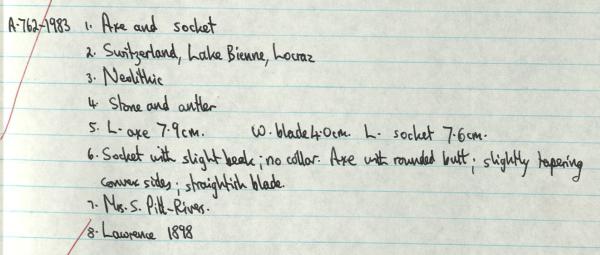 A.762-1983 1. Axe and socket
2. Switzerland, Lake Bienne, Locraz
3. Neolithic
4. Stone and antler
5. L. axe 7.9cm. W. blade 4.0cm. L. socket 7.6cm.
6. Socket with slight beak; no collar. Axe with rounded butt; slightly tapering
convex sides; straightish blade.
7. Mrs. S. Pitt-Rivers.
8. Lawrence 1898